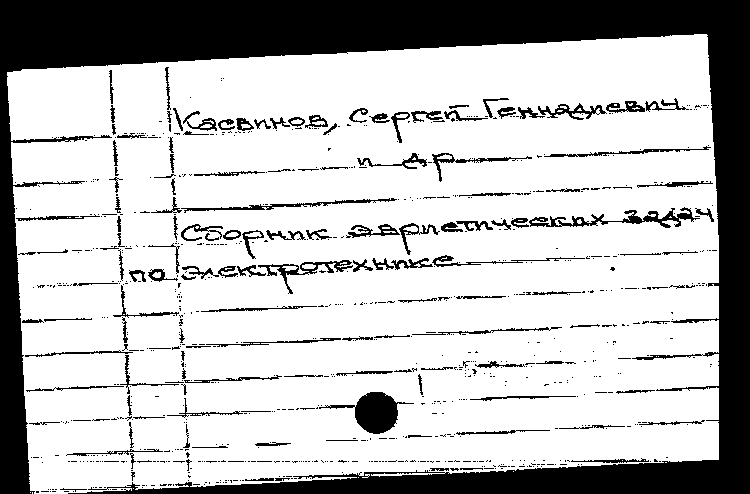 Касвинов, Сергей Геннадиевич
и др.
Сборник эвристических задач
по электротехнике.